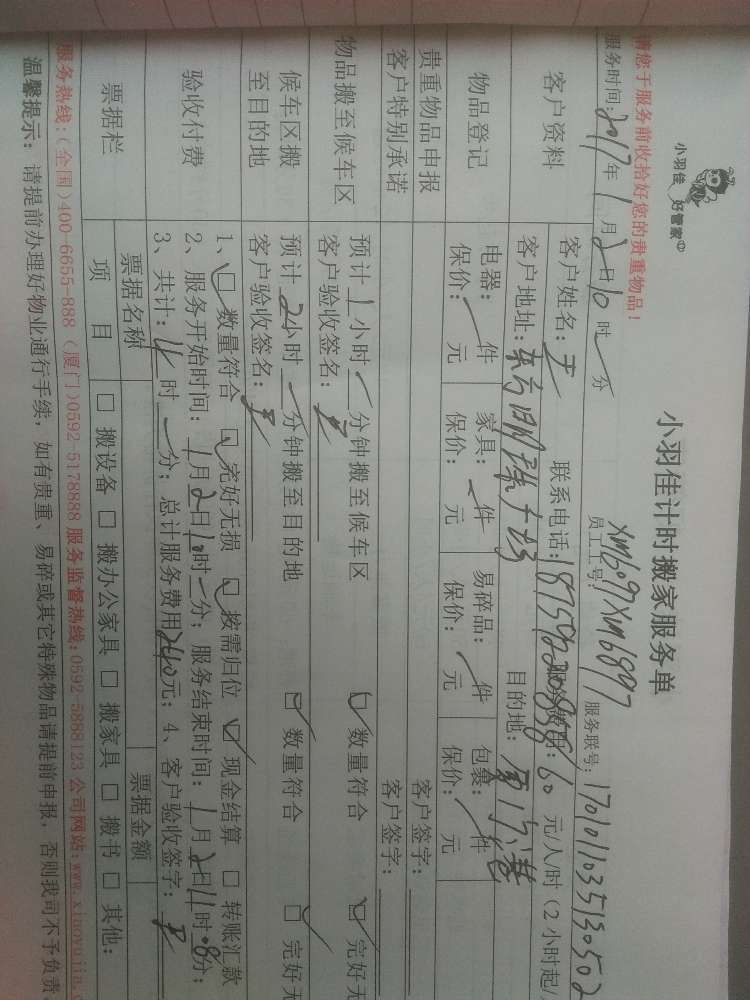 小羽佳 好管家
小羽佳计时搬家服务单
请您于服务前收拾好您的贵重物品!
员工工号: XM6097XM6897
服务时间: 2017年1月2日10时一分
服务联号: 1701011035130502
客户资料
客户姓名: 王 联系电话: 60元/人/时(2小时起/
客户地址: 东方明珠广场 目的地:
物品登记
电器: 件 家具: 件 易碎品: 件 包裹: 件
保价: 元 保价: 元 保价: 元 保价: 元
贵重物品申报 客户签字:
客户特别承诺 客户签字:
物品搬至候车区
预计1小时 分钟搬至候车区 数量符合 完好无
客户验收签名:
候车区搬至目的地
预计2小时 分钟搬至目的地 数量符合 完好无
客户验收签名:
验收付费
1、数量符合 完好无损 按需归位 现金结算 转账汇款
2、服务开始时间: 1月2日10时一分; 服务结束时间: 1月2日11时 分;
3、共计: 4时一分; 总计服务费用240元; 4、客户验收签字:
票据栏
票据名称 票据金额
项目 搬设备 搬办公家具 搬家具 搬书 其他:
服务热线:(全国)400-6655-888 (厦门)0592-5178888 服务监督热线:0592-5888123 公司网站:www.xiaoyujia.
温馨提示: 请提前办理好物业通行手续, 如有贵重、易碎或其它特殊物品请提前申报, 否则我司不予负责